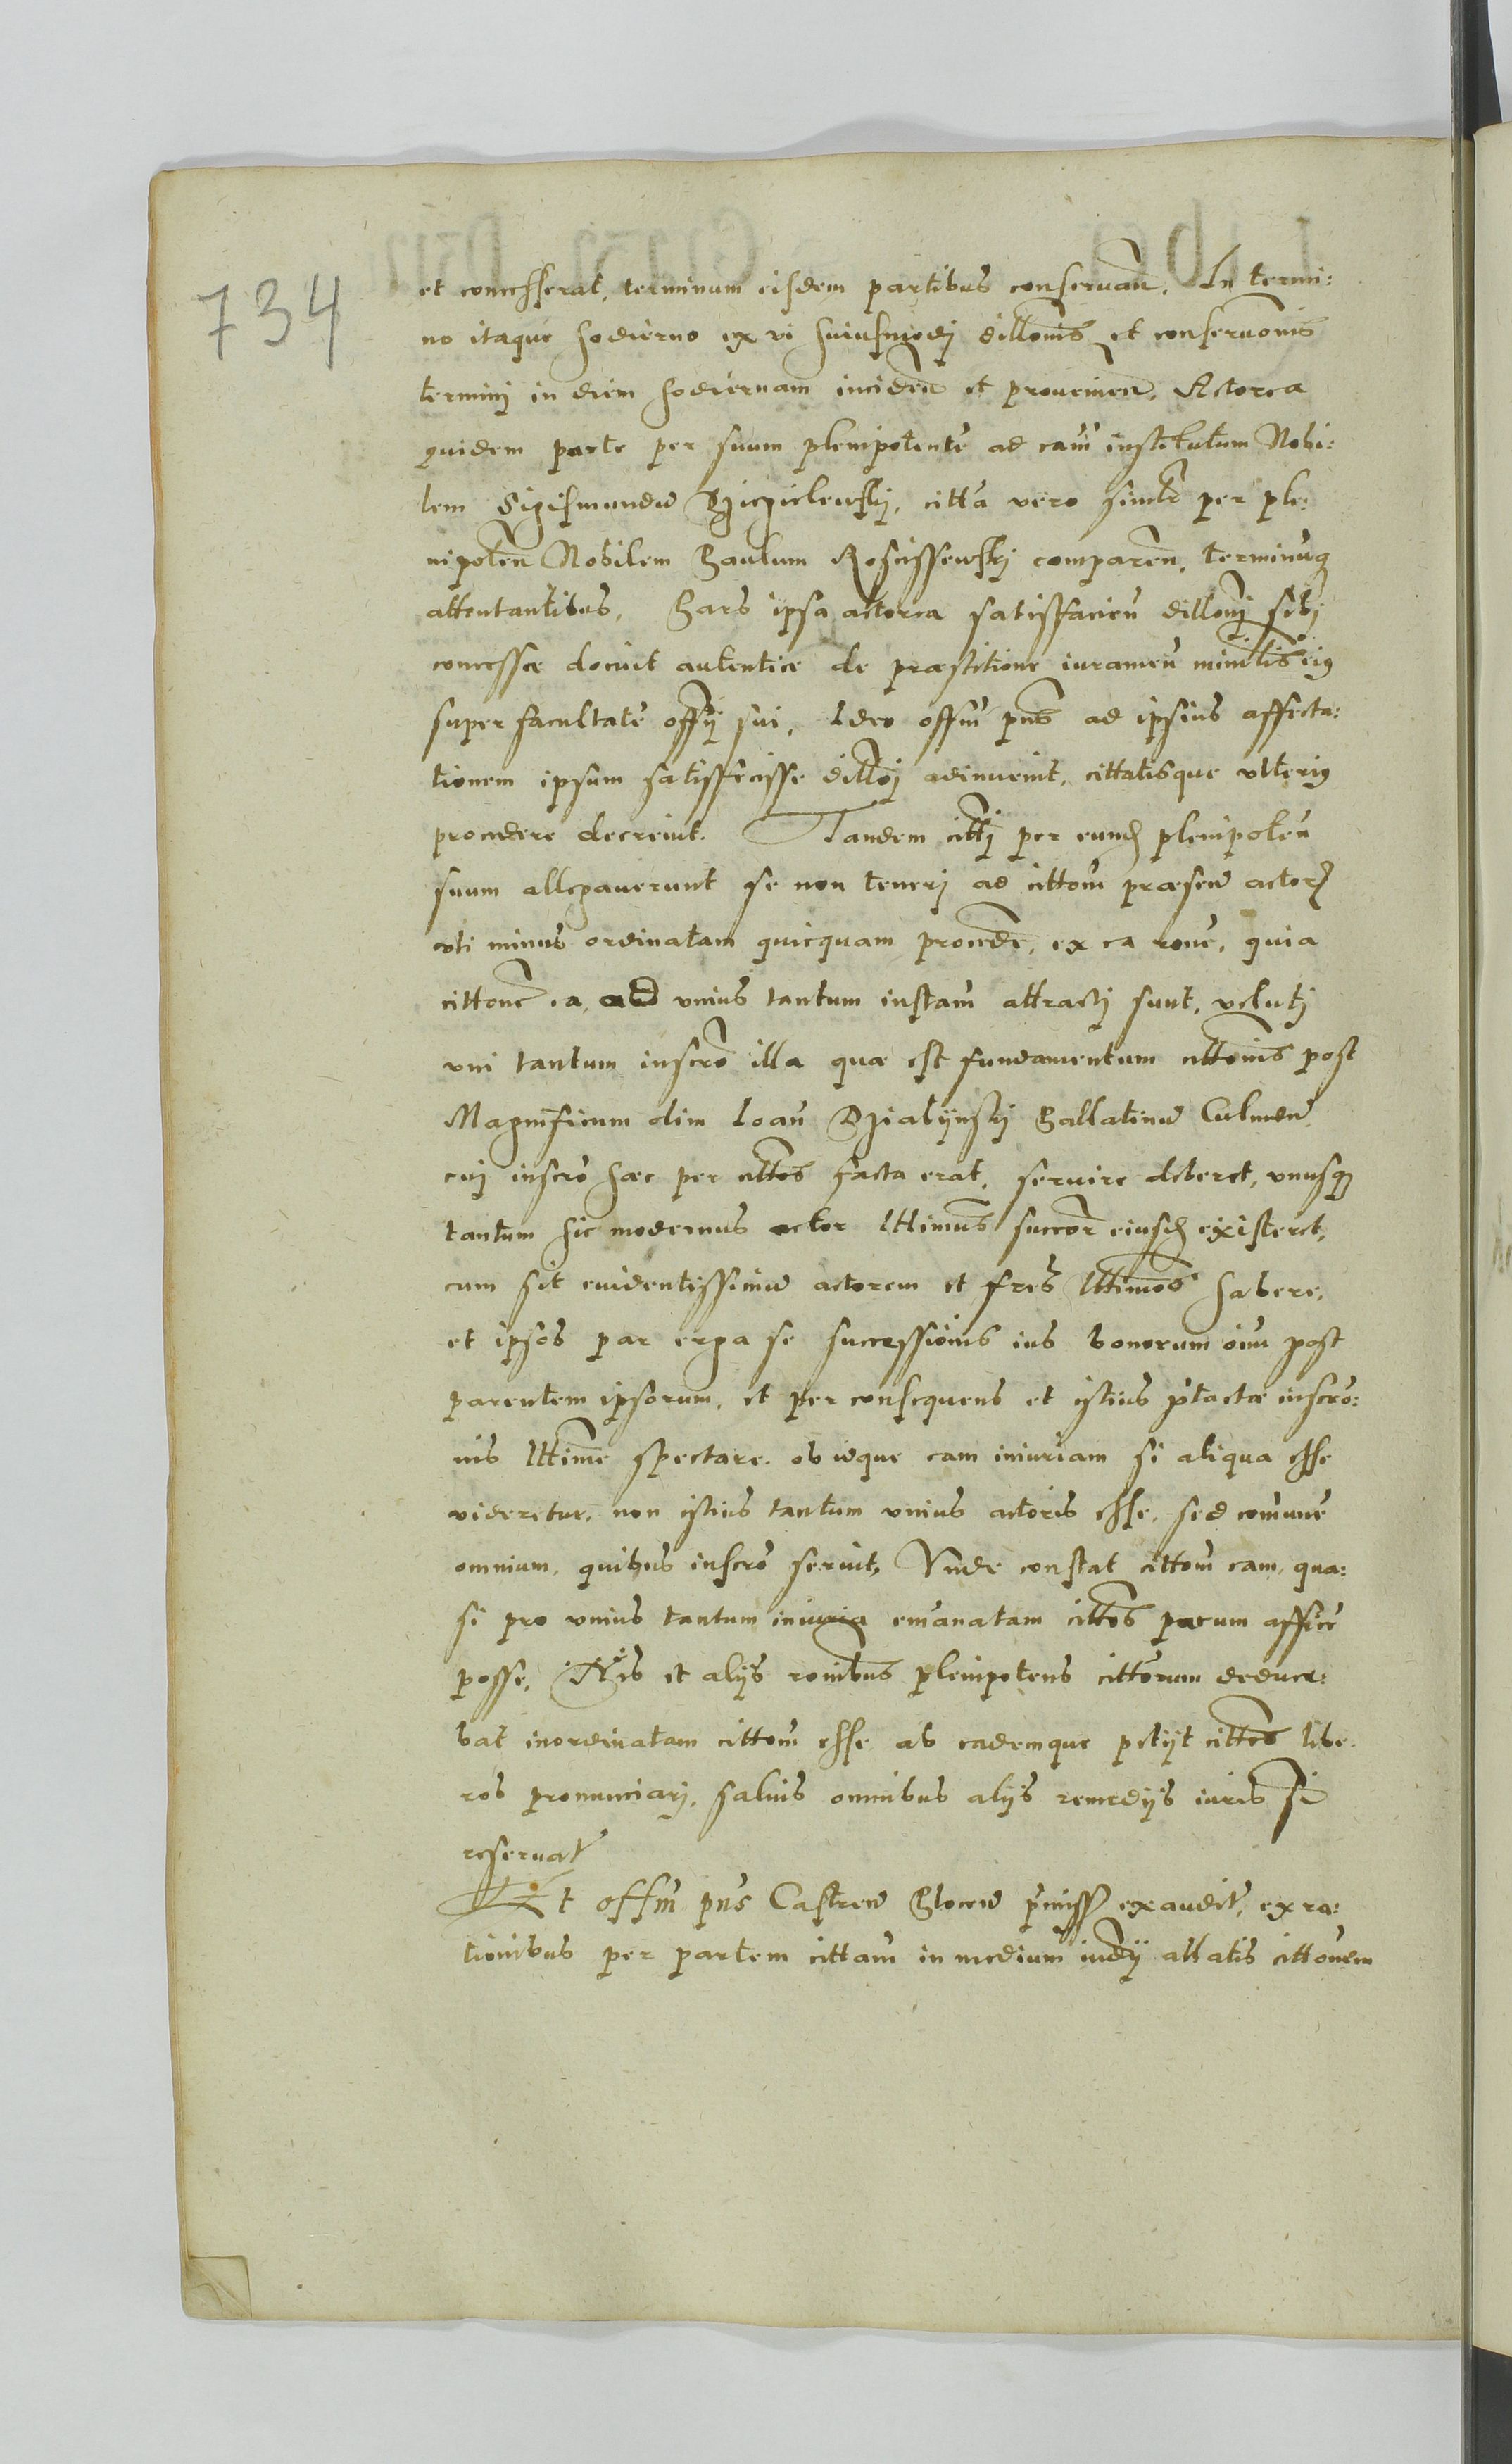 734
et concesserat, terminum eisdem partibus conseruan̄. In termi:
no itaque hodierno ex vi huiusmodj dillonis et conseruonis
terminj in diem hodiernam inciden̄ et prouenien̄. Actorea
quidem parte per suum plenipotente ad cam̄ institutum Nobi:
lem Sigismundū citta vero simlr per ple:
nipoten̄ Nobilem Paulum Roscissewskj comparen̄, terminūq
attentantibus. Pars ipsa actorea satisfacien̄ dillonj sibj
concessæ docuit autentice de præstitione iuramen̄ minrlis eiq
super facultate offij sui. Ideo offm̄ pn̄s ad ipsius affecta:
tionem ipsum satisfecisse dillonj adinuenit, cittatisque vlteriq
procedere decreuit. Tandem cittj per eund plenipoten̄
suum allegauerunt se non tenerj ad cittom̄ præsen̄ actor
vti minus ordinatam quicquam procedē, ex ea rone, quia
cittone ea, ad vnius tantum instam̄ attractj sunt, velutj
vni tantum inscro illa quæ est fundamentum cittonis post
Magnificum olim Ioan̄ Dzialijnskj Pallatinū Culmen̄
cuj inscro hæc per cittos facta erat, seruire deberet, vnusq
tantum hic modernus actor lttimus succor eiusd existeret,
cum sit euidentissimū actorem et fres lttimos habere,
et ipsos par erga se successionis ius bonorum oiu post
parentem ipsorum, et per consequens et istius ptactæ inscro:
nis lttime spectare. ob idque eam iniuriam si aliqua esse
videretur, non istius tantum vnius actoris esse, sed comune
omnium, quibus inscro seruit, Vnde constat cittom̄ eam, qua:
si pro vnius tantum iniuria emanatam cittos parum affice
posse. His et alijs ronibus plenipotens cittorum deduce:
bat inordinatam cittom̄ esse ab eademque petijt cittos libe:
ros pronunciarj, saluis omnibus alijs remedijs iuris si
reseruat
Et offm̄ pn̄s Castren̄ Plocen̄ pmiss exaudit, ex ra:
tionibus per partem cittam̄ in medium iudij allatis cittonem